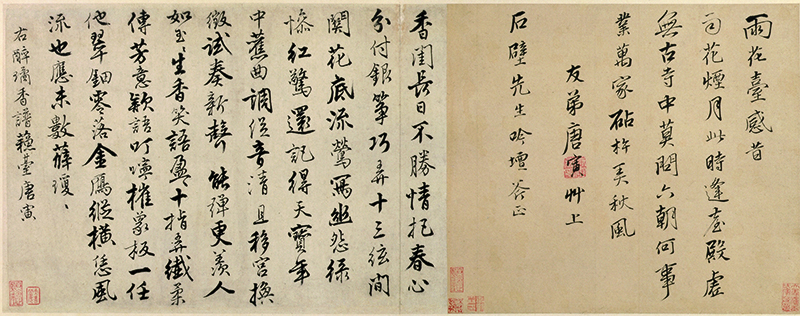 雨花臺感昔
司花煙月此時逢臺殿虛
無古寺中莫問六朝何事
業萬家砧杵秋風
友弟唐寅艸上
石壁先生吟壇正
香閨長日不勝情把春心
分付銀箏巧弄十三弦間
關花底流鶯寫幽怨綠
慘紅驚還記得天寶年
中曲調從音清且移宮換
徵試奏新聲能彈更羨人
如玉生香笑語盈〻十指弄纖柔
傳芳意語叮嚀板一任
他翠鈿零落金雁縱橫恁風
流也應未數薛瓊〻
右醉香譜蘓臺唐寅